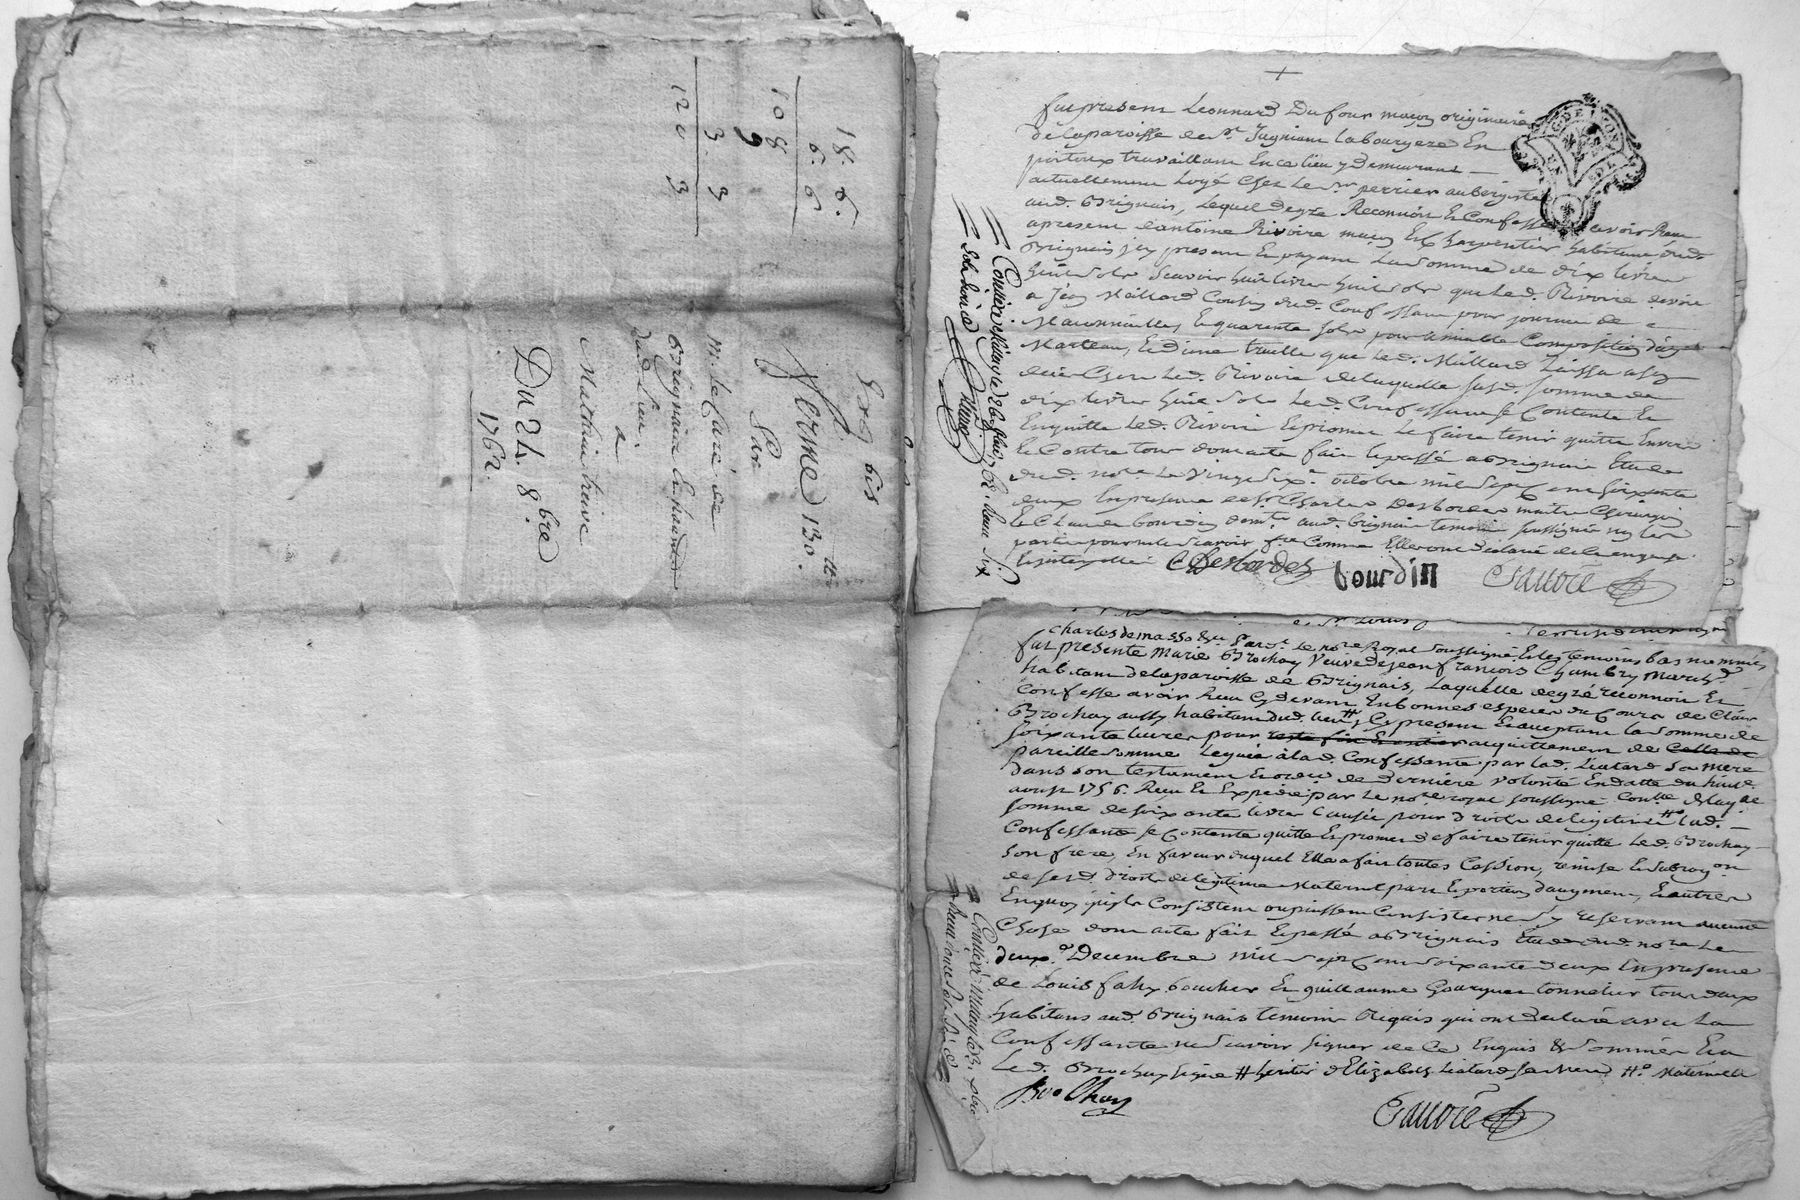 18. 6.
6. 6
108
9
3. 3
120 3
bis
ferme 130.tt
Par
Mr. le Curé de
Brignais
dud. Lieu.
a
Mathieu
Du 24. 8bre
1762.
fut present Leonnard Dufour maçon originaire
de la paroisse de st. Jugniant Labourgere En
poitoux travaillant En ce lieu y demeurant
actuellement Logé Chez le sr. perrier aubergiste
aud. Brignais, Lequel degré Reconnoit Et Confesse avoir Receu
apresent d'antoine Rivoire maçon Et Charpentier habitant dud.
Brignais icy present Et payant La somme de dix livres
huit sols Scavoir huit livres huit sols que Led. Rivoire devoit
a Jean Maillard Cousin dud. Confessant pour journées de
Maconnailles, Et quarante sols pour amiable Composition d'un
Marteau, Et d'une truelle que Led. Maillard Laissa
Chez Led. Rivoire de laquelle susd. somme de
dix livres huit sols Led. Confessant se Contente Et
En quitte Led. Rivoire Et promet Le faire tenir quitte Envers
Et Contre tous dont acte fait Et passé a Brignais Etude
dud. nore. Le Vingt Six. octobre mil Sept Cent soixante
deux En presence de sr. Charles Desbordes maitre Chirurgien
Et Claude bourdin demt. aud. brignais temoins soussignés
parties pour ne Scavoir fre Comme Elles ont declaré de ce enquis
Et interpellés CDesbordes bourdin Sauvoie
Controllé a Millery le 26. 1762. Receu Six
Sols
Charles de masso Par dt. Le nore Royal soussigné Et les temoins bas nommés
fut presente Marie Brochay Veuve de jean françois Chambry Marchd.
habitant de la paroisse de Brignais, Laquelle degré reconnoit Et
Confesse avoir Receu Cy devant En bonnes especes du Cours de Clair
Brochay aussy habitant dud. lieu # Cy present Et acceptant la somme de
soixante livres pour acquittement de
pareille somme Leguée à lad. Confessante par lad. Liatard sa mere
dans son testament Et ordre de derniere volonté En datte du huit
aoust 1756. Receu Et Expedié par Le nore royal soussigné
somme de soixante livres Causée pour droits de legitime #. lad.
Confessante se Contente quitte Et promet de faire tenir quitte Led. Brochay
son frere, En faveur duquel Elle a fait toutes Cession, remise Et subrogon
de sesd. droits de legitime Maternel part Et portion d'augment, Et autres
En quoy qu'ils Consistent ou puissent Consister ne s'y reservant aucune
Chose dont acte fait Et passé a Brignais Etude dud. nore Le
deux. Decembre mil sept Cent soixante deux En presence
de Louis fahy boucher Et guillaume Gourguet tonnelier tous deux
habitans aud. Brignais temoins Requis qui ont declaré avec La
Confessante ne Scavoir signer de Ce Enquis & Sommés Et a
Led. Brochay signé # heritier d'Elizabeth Liatard sa Mere #. Maternelle
Brochay
Sauvoie
Controllé a Millery le 3. xbre
Receu